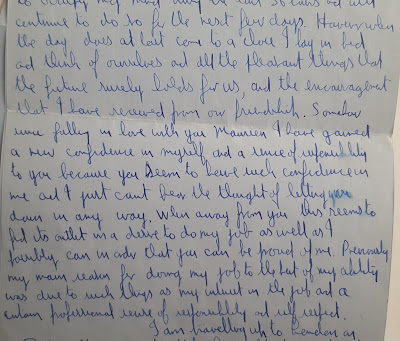 to occupy my mind during the last 36 hours and will
continue to do so for the next few days. However when
the day does at last come to a close I lay in bed
and think of ourselves and all the pleasant things that
the future surely holds for us, and the encouragement
that I have received from our friendship. Somehow
since falling in love with you Maureen I have gained
a new confidence in myself and a sense of responsibility
to you because you seem to have such confidence in
me and I just can't bear the thought of letting you
down in any way. When away from you this seems to
find its outlet in a desire to do my job as well as I
possibly can in order that you can be proud of me. Previously
my main reason for doing my job to the best of my ability
was due to such things as my interest in the job and a
certain professional sense of responsibility and self respect.
I am travelling up to London on